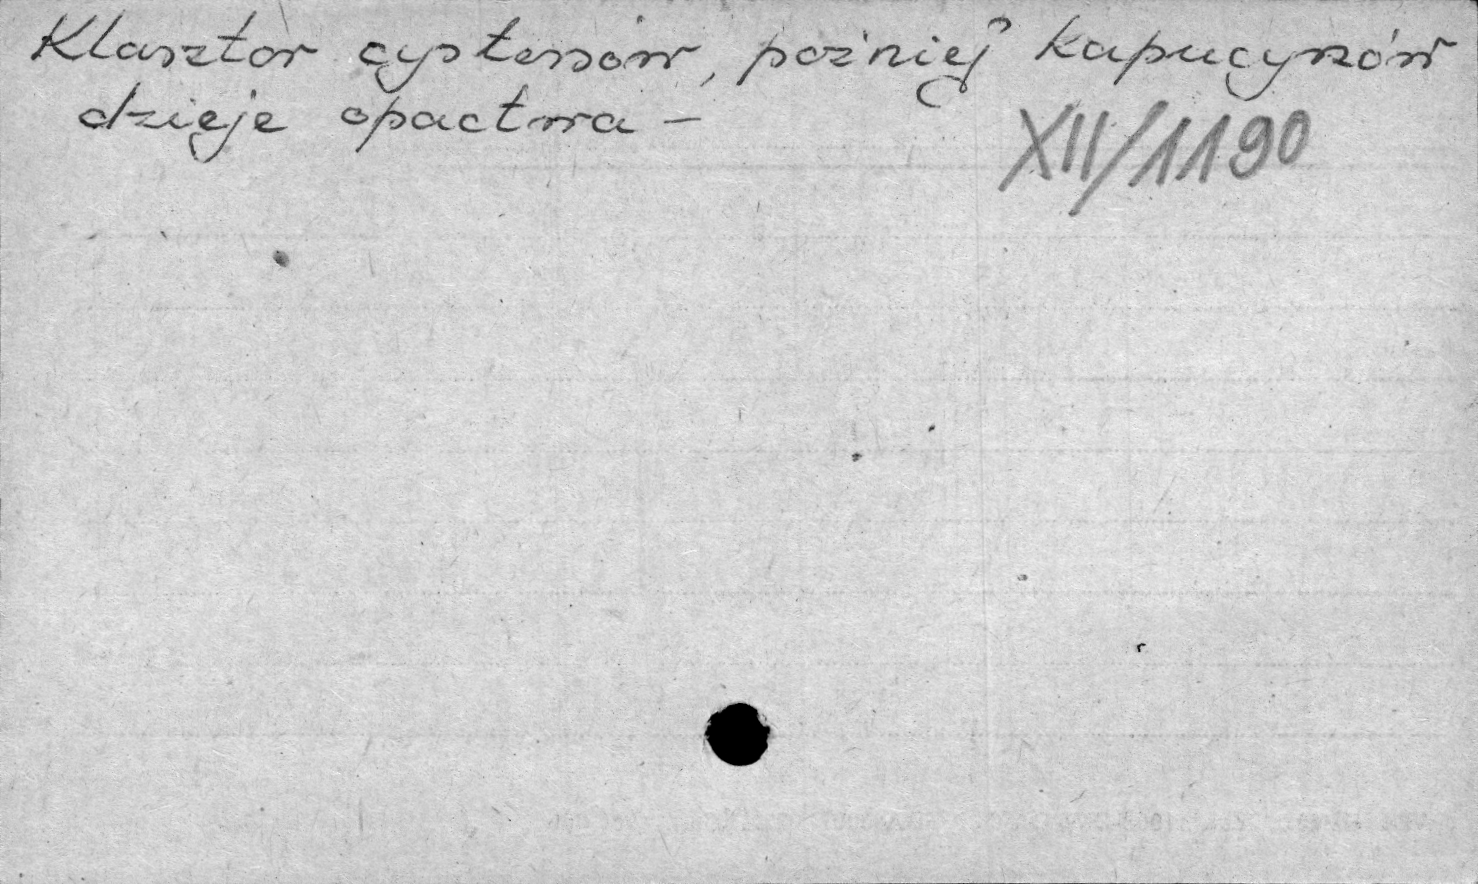 Klasztor cystersów, poźniej kapucynów
dzieje opactwa -
XII/1190